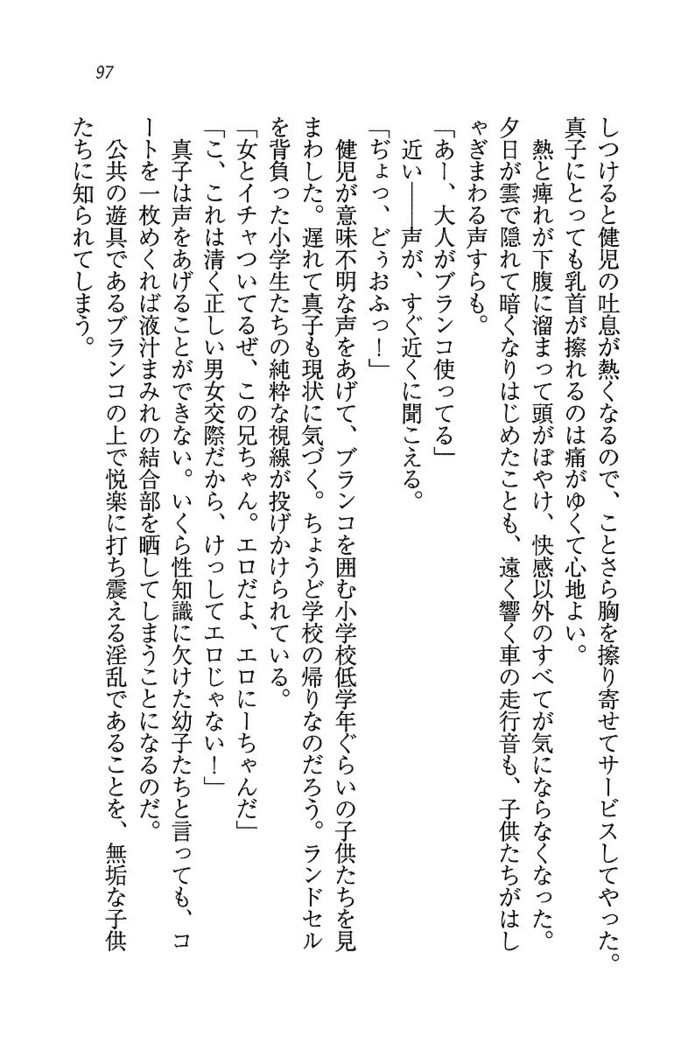 97
しつけると健児の吐息が熱くなるので、ことさら胸を擦り寄せてサービスしてやった。
真子にとっても乳首が擦れるのは痛がゆくて心地よい。
熱と痺れが下腹に溜まって頭がぼやけ、快感以外のすべてが気にならなくなった。
夕日が雲で隠れて暗くなりはじめたことも、遠く響く車の走行音も、子供たちがはし
ゃぎまわる声すらも。
「あー、大人がブランコ使ってる」
近い――声が、すぐ近くに聞こえる。
「ぢょっ、どぅおふっ！」
健児が意味不明な声をあげて、ブランコを囲む小学校低学年ぐらいの子供たちを見
まわした。遅れて真子も現状に気づく。ちょうど学校の帰りなのだろう。ランドセル
を背負った小学生たちの純粋な視線が投げかけられている。
「女とイチャついてるぜ、この兄ちゃん。エロだよ、エロにーちゃんだ」
「こ、これは清く正しい男女交際だから、けっしてエロじゃない！」
真子は声をあげることができない。いくら性知識に欠けた幼子たちと言っても、コ
ートを一枚めくれば液汁まみれの結合部を晒してしまうことになるのだ。
公共の遊具であるブランコの上で悦楽に打ち震える淫乱であることを、無垢な子供
たちに知られてしまう。